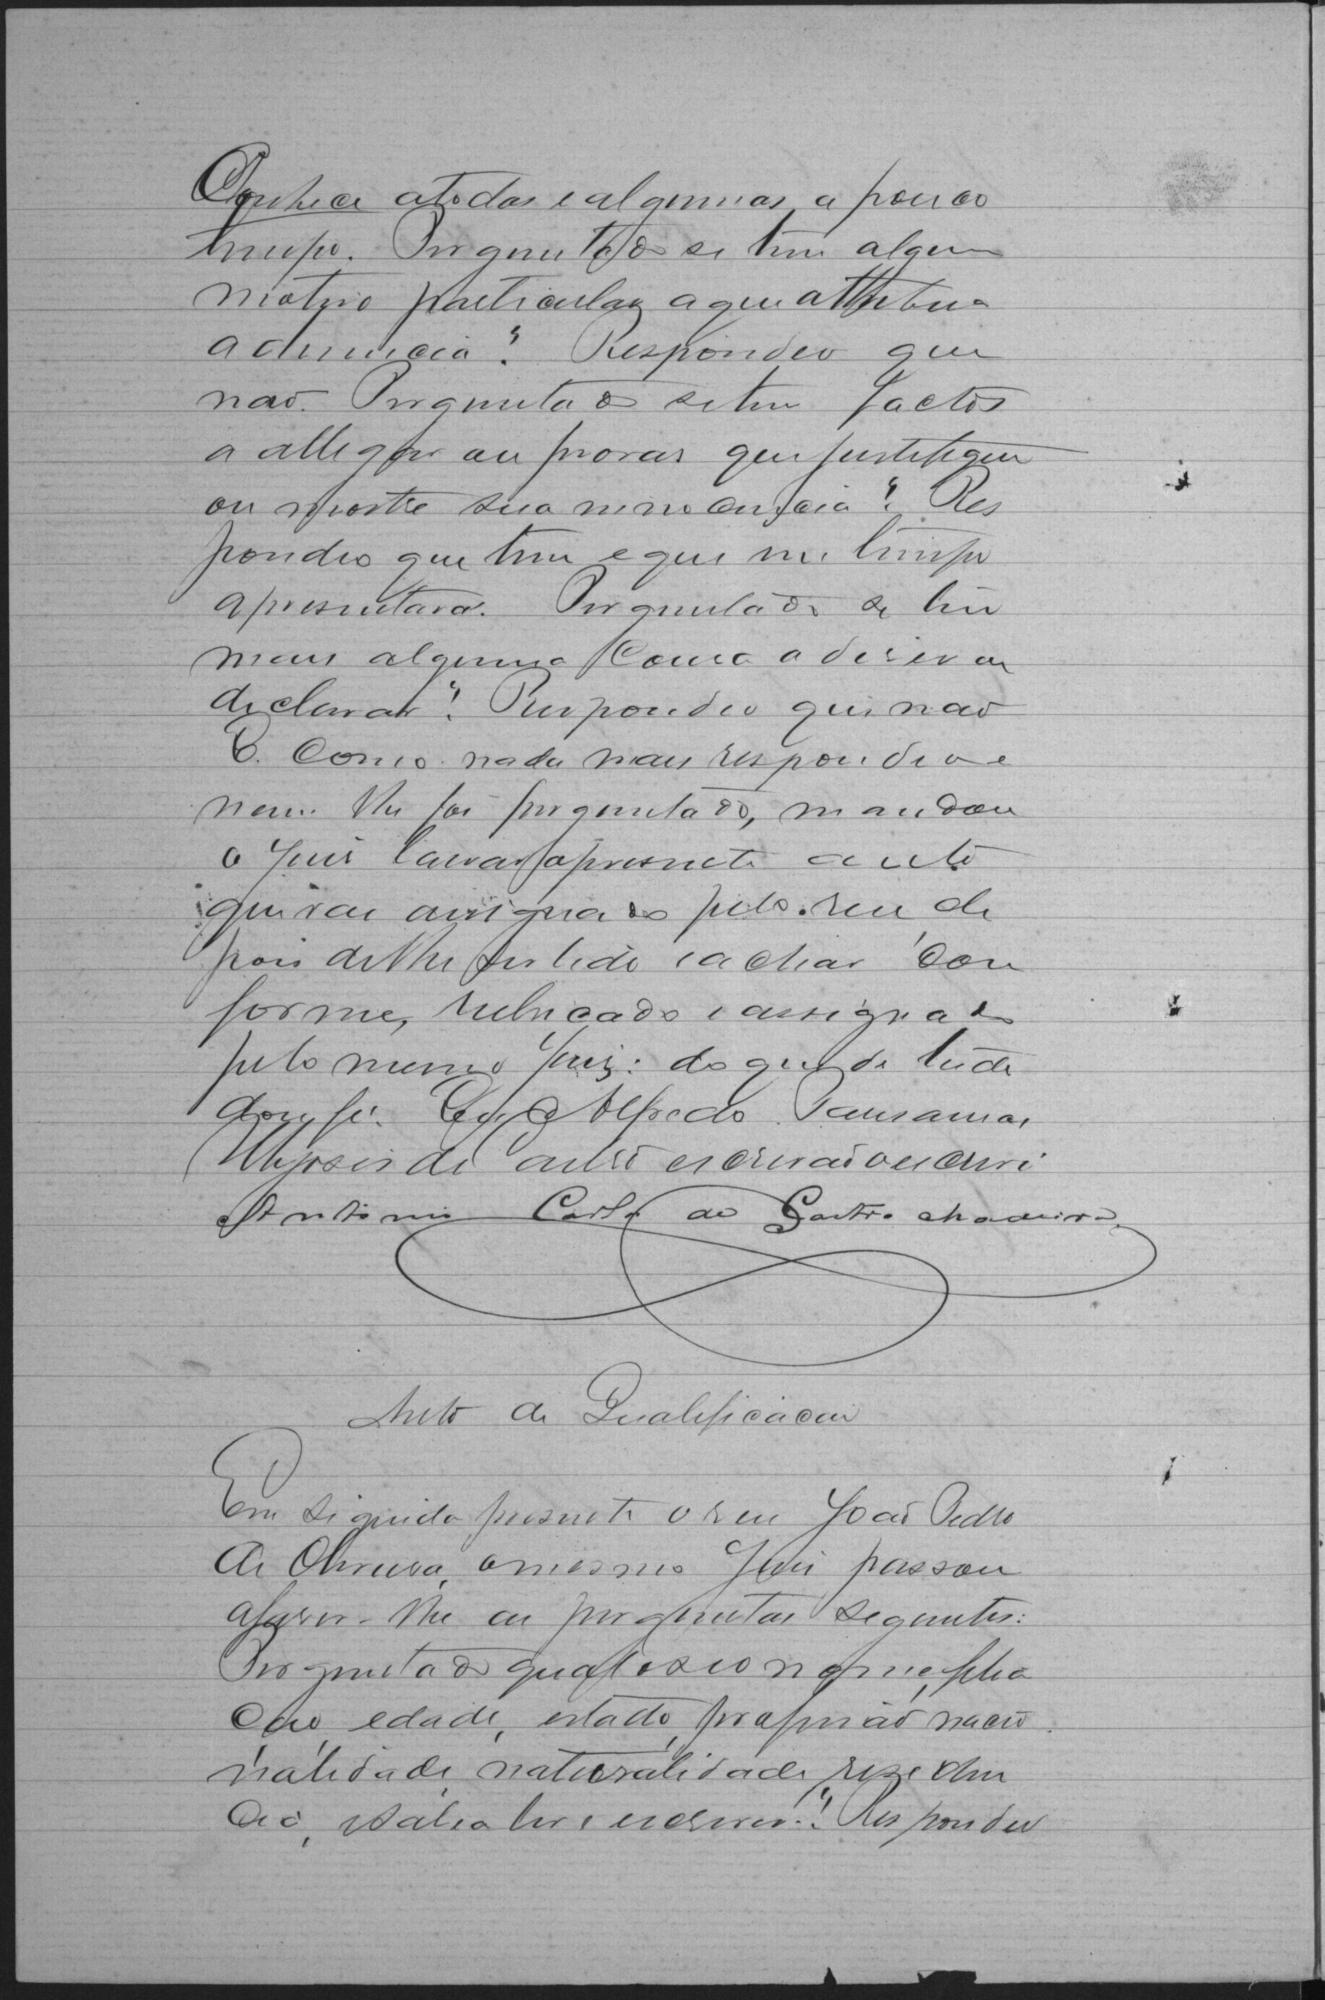 Conhece atodas e algumas a pouco
tempo. Perguntado se tem algum
motivo particular a que attribua
a denuncia? Respondeu que
não. Perguntado se tem factos
a allegar ou provas que justefiquem
ou mostre sua innocencia? Res
pondeo que tem e que em tempo
apresentara. Perguntado se tem
mais alguma Cousa a diser ou
declarar? Respondeu que não
E. Como nada mais respondeu e
nem lhe foi perguntado, mandou
o Juis lavar o presente auto
que vae assignado pelo reu de
pois de lhe ser lido e achar Con
forme, rubricado e assignado
pelo mesmo Juiz: do que de tudo
dou fé. Eu Alfredo Pausanias
escrivão o escrevi
Antonio Carlos de Castro Madeira
Auto de Qualificacão
Em seguida presente o reu João Pedro
de Oliveira, o mesmo Juis passou
afaser-lhe as perguntas seguintes:
Perguntado qual o seo nome, filia
Cão, edade, estado, profissão nacio
nalidade, naturalidade, residen
Cia, esabia ler e escrever? Respondeu